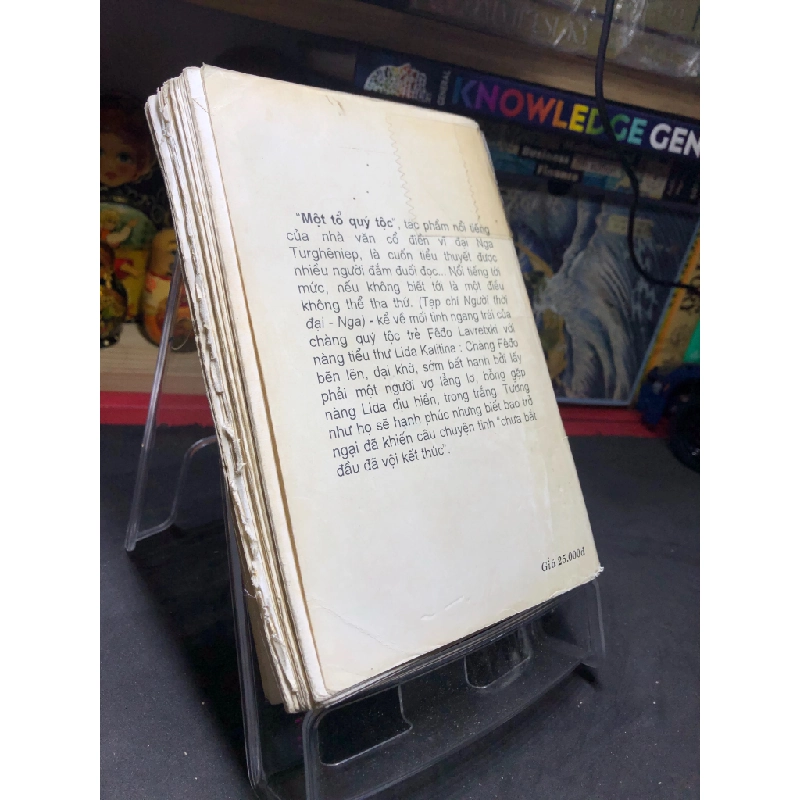 GENERAL
KNOWLEDGE GEN
Business
Finance
"Một tổ quý tộc", tác phẩm nổi tiếng
của nhà văn cổ điển vĩ đại Nga
Turghêniep, là cuốn tiểu thuyết được
nhiều người đắm đuối đọc... Nổi tiếng tới
mức, nếu không biết tới là một điều
không thể tha thứ. (Tạp chí Người thời
đại - Nga) - kể về mối tình ngang trái của
chàng quý tộc trẻ Fêđo Lavretxki với
nàng tiểu thư Lida Kalitina : Chàng Fêđo
bẽn lẽn, dại khờ, sớm bất hạnh bởi lấy
phải một người vợ lẳng lơ, bỗng gặp
nàng Lida dịu hiền, trong trắng. Tưởng
như họ sẽ hạnh phúc nhưng biết bao trở
ngại đã khiến câu chuyện tình "chưa bắt
đầu đã vội kết thúc".
Giá 25.000đ